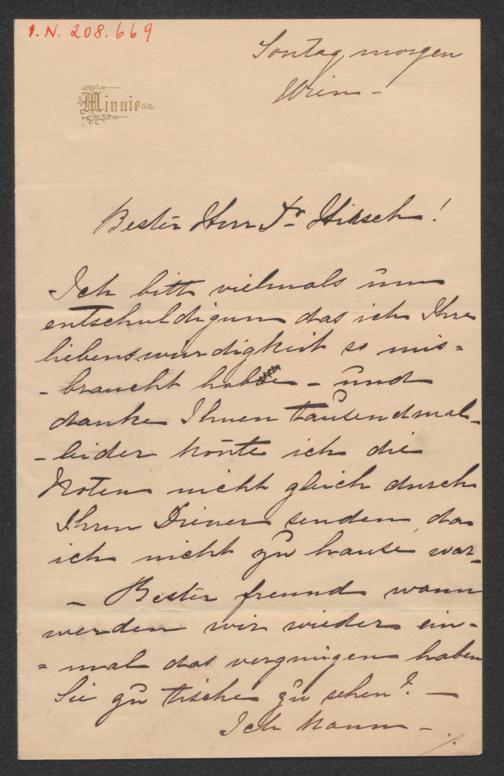 I.N. 208.669
Sontag morgen
Wien -
Minnie
Bester Herr Dr Hirsch!
Ich bitte vielmals um
entschuldigung das ich Ihre
liebenswürdigkeit so mis-
-braucht habe - und
danke Ihnen tausendmal -
- leider konte ich die
Noten nicht gleich durch
Ihren Diener senden, da
ich nicht zu hause war -
- Bester freund wann
werden wir wieder ein-
- mal das vergnügen haben
Sie zu tische zu sehen? -
Ich kann - ./.